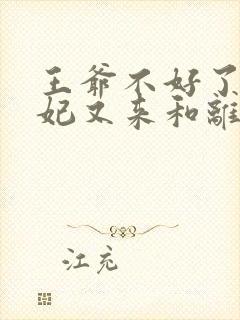 王爷不好了
妃又来和離
江充